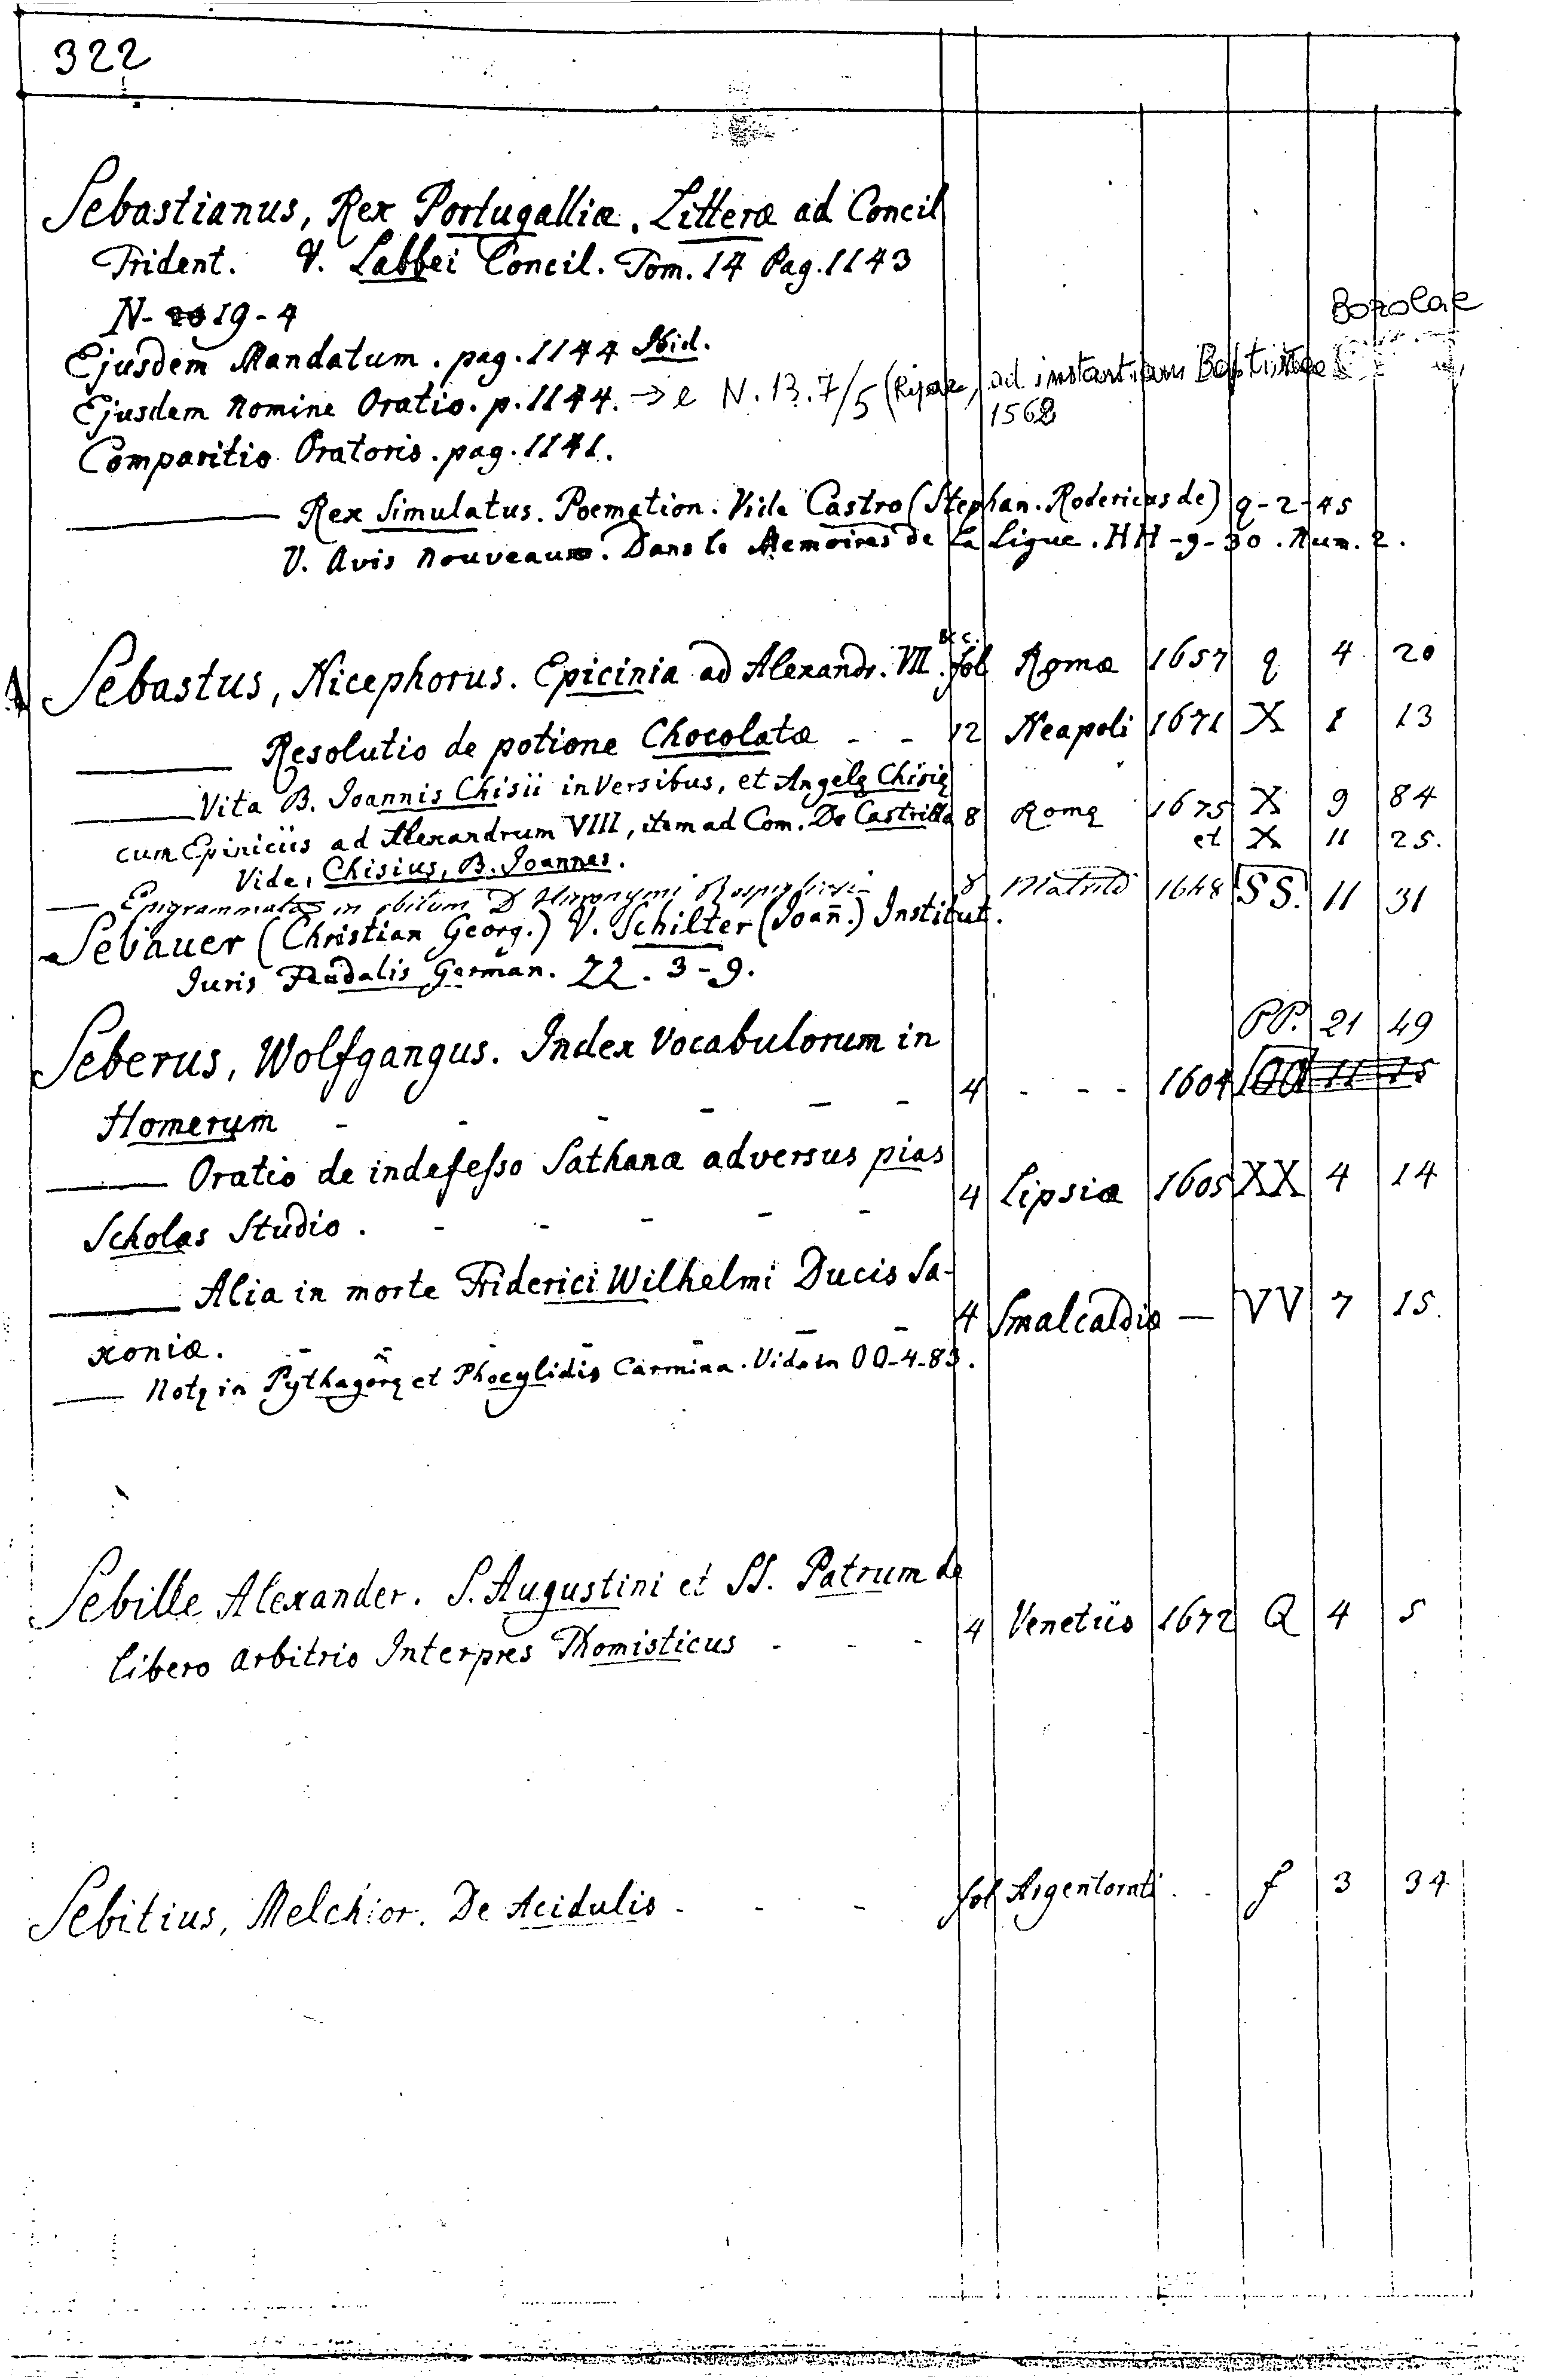 322
Sebastianus, Rex Portugalliæ. Litteræ ad Concil
Trident. V. Labbei Concil. Tom. 14 Pag. 1143
N- 20 19-4
Bozolae
Ejusdem Mandatum. pag. 1144 Ibid.
Ejusdem nomine Oratio. p. 1144. → e N. 13. 7/5 (Ripae, ad instantiam Baptistae
1562
Comparitio Oratoris. pag. 1141.
——— Rex Simulatus. Poemation. Vide Castro (Stephan. Rodericus de) q-2-45
V. Avis nouveaux. Dans le Memoires de la Ligue. HH-9-30. Num. 2.
Sebastus, Nicephorus. Epicinia ad Alexandr. VII. &c. fol Romæ 1657 q 4 20
——— Resolutio de potione Chocolatæ - - 12 Neapoli 1671 X 1 13
——— Vita B. Joannis Chisii in Versibus, et Angelę Chisię
cum Epiniciis ad Alexandrum VIII, item ad Com. De Castrillo 8 Romę 1675 X 9 84
et X 11 25.
Vide, Chisius, B. Joannes.
— Epigrammata in obitum D Hieronymi 8 Matriti 1648 SS. 11 31
Sebauer (Christian Georg.) V. Schilter (Joan̄.) Institut.
Juris Feudalis German. ZZ. 3-9.
Seberus, Wolfgangus. Index Vocabulorum in PP. 21 49
Homerum - - - - - 4 - - - 1604 11 15
——— Oratio de indefesso Sathanæ adversus pias
Scholas Studio. - - - - - 4 Lipsiæ 1605 XX 4 14
——— Alia in morte Friderici Wilhelmi Ducis Sa-
xoniæ. - - - - - 4 Smalcaldiæ — VV 7 15.
—— Notę in Pythagorę et Phocylidis Carmina. Vide in OO-4-83.
Sebille Alexander. S. Augustini et SS. Patrum de
libero arbitrio Interpres Thomisticus - - - 4 Venetiis 1672 Q 4 5
Sebitius, Melchior. De Acidulis - - - fol Argentorati . . f 3 34